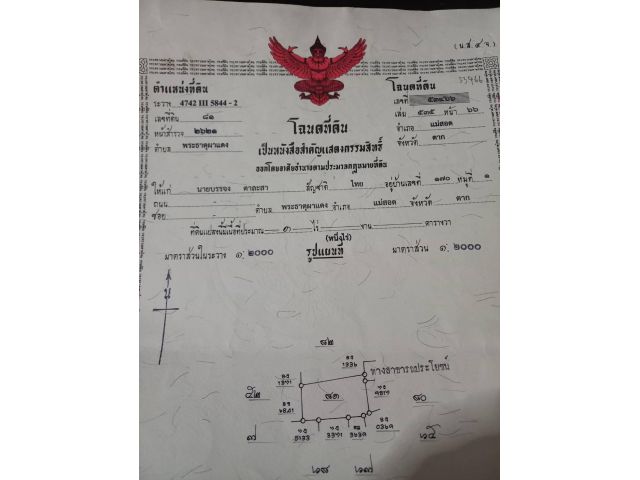 (น.ส.๔ จ.)
ตำแหน่งที่ดิน
ระวาง 4742 III 5844 - 2
เลขที่ดิน ๘๑
หน้าสำรวจ ๒๖๒๑
ตำบล พระธาตุผาแดง
โฉนดที่ดิน
เลขที่
เล่ม ๕๓๕ หน้า ๖๖
อำเภอ แม่สอด
จังหวัด ตาก
โฉนดที่ดิน
เป็นหนังสือสำคัญแสดงกรรมสิทธิ์
ออกโดยอาศัยอำนาจตามประมวลกฎหมายที่ดิน
ให้แก่ นายบรรจง ตาละสา สัญชาติ ไทย อยู่บ้านเลขที่ ๑๗๐ หมู่ที่ ๑
ถนน - ตำบล พระธาตุผาแดง อำเภอ แม่สอด จังหวัด ตาก
ซอย -
ที่ดินแปลงนี้มีเนื้อที่ประมาณ ๑ ไร่ - งาน - ตารางวา
(หนึ่งไร่)
มาตราส่วนในระวาง ๑: ๒๐๐๐ รูปแผนที่ มาตราส่วน ๑: ๒๐๐๐
น
๘๒
ทางสาธารณประโยชน์
๕๒
๘๑
๘๐
๗
๖๕
๖๘ ๖๗